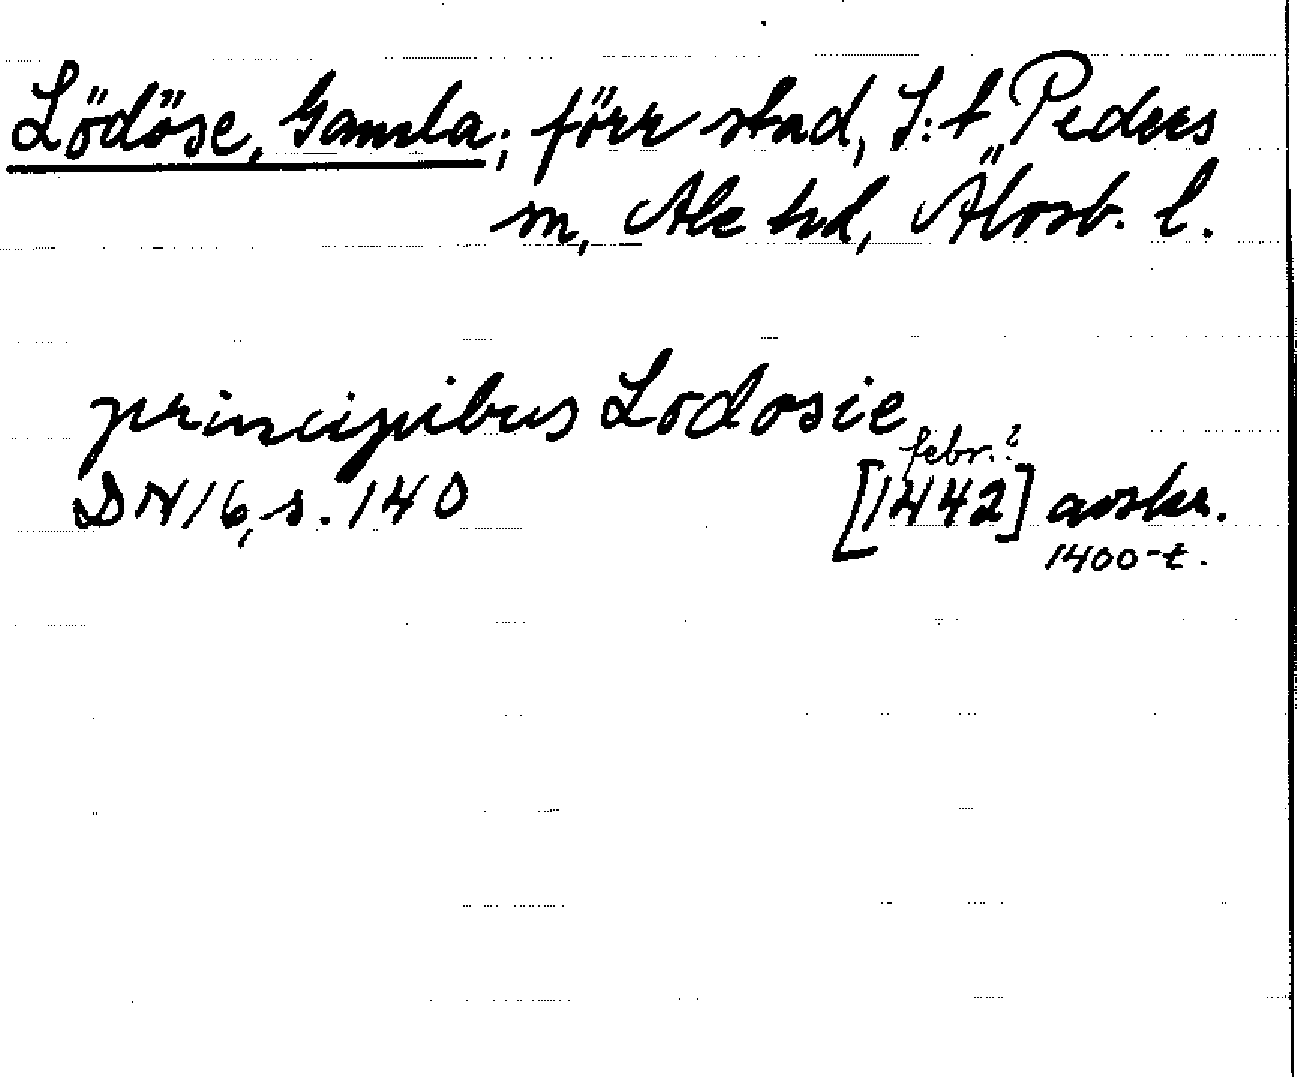 Lödöse, Gamla; förr stad, S:t Peders
sn, Ale hd, Älvsb. l.
principibus Lodosie
febr.?
DN 16, s. 140 [1442] avskr.
1400-t.